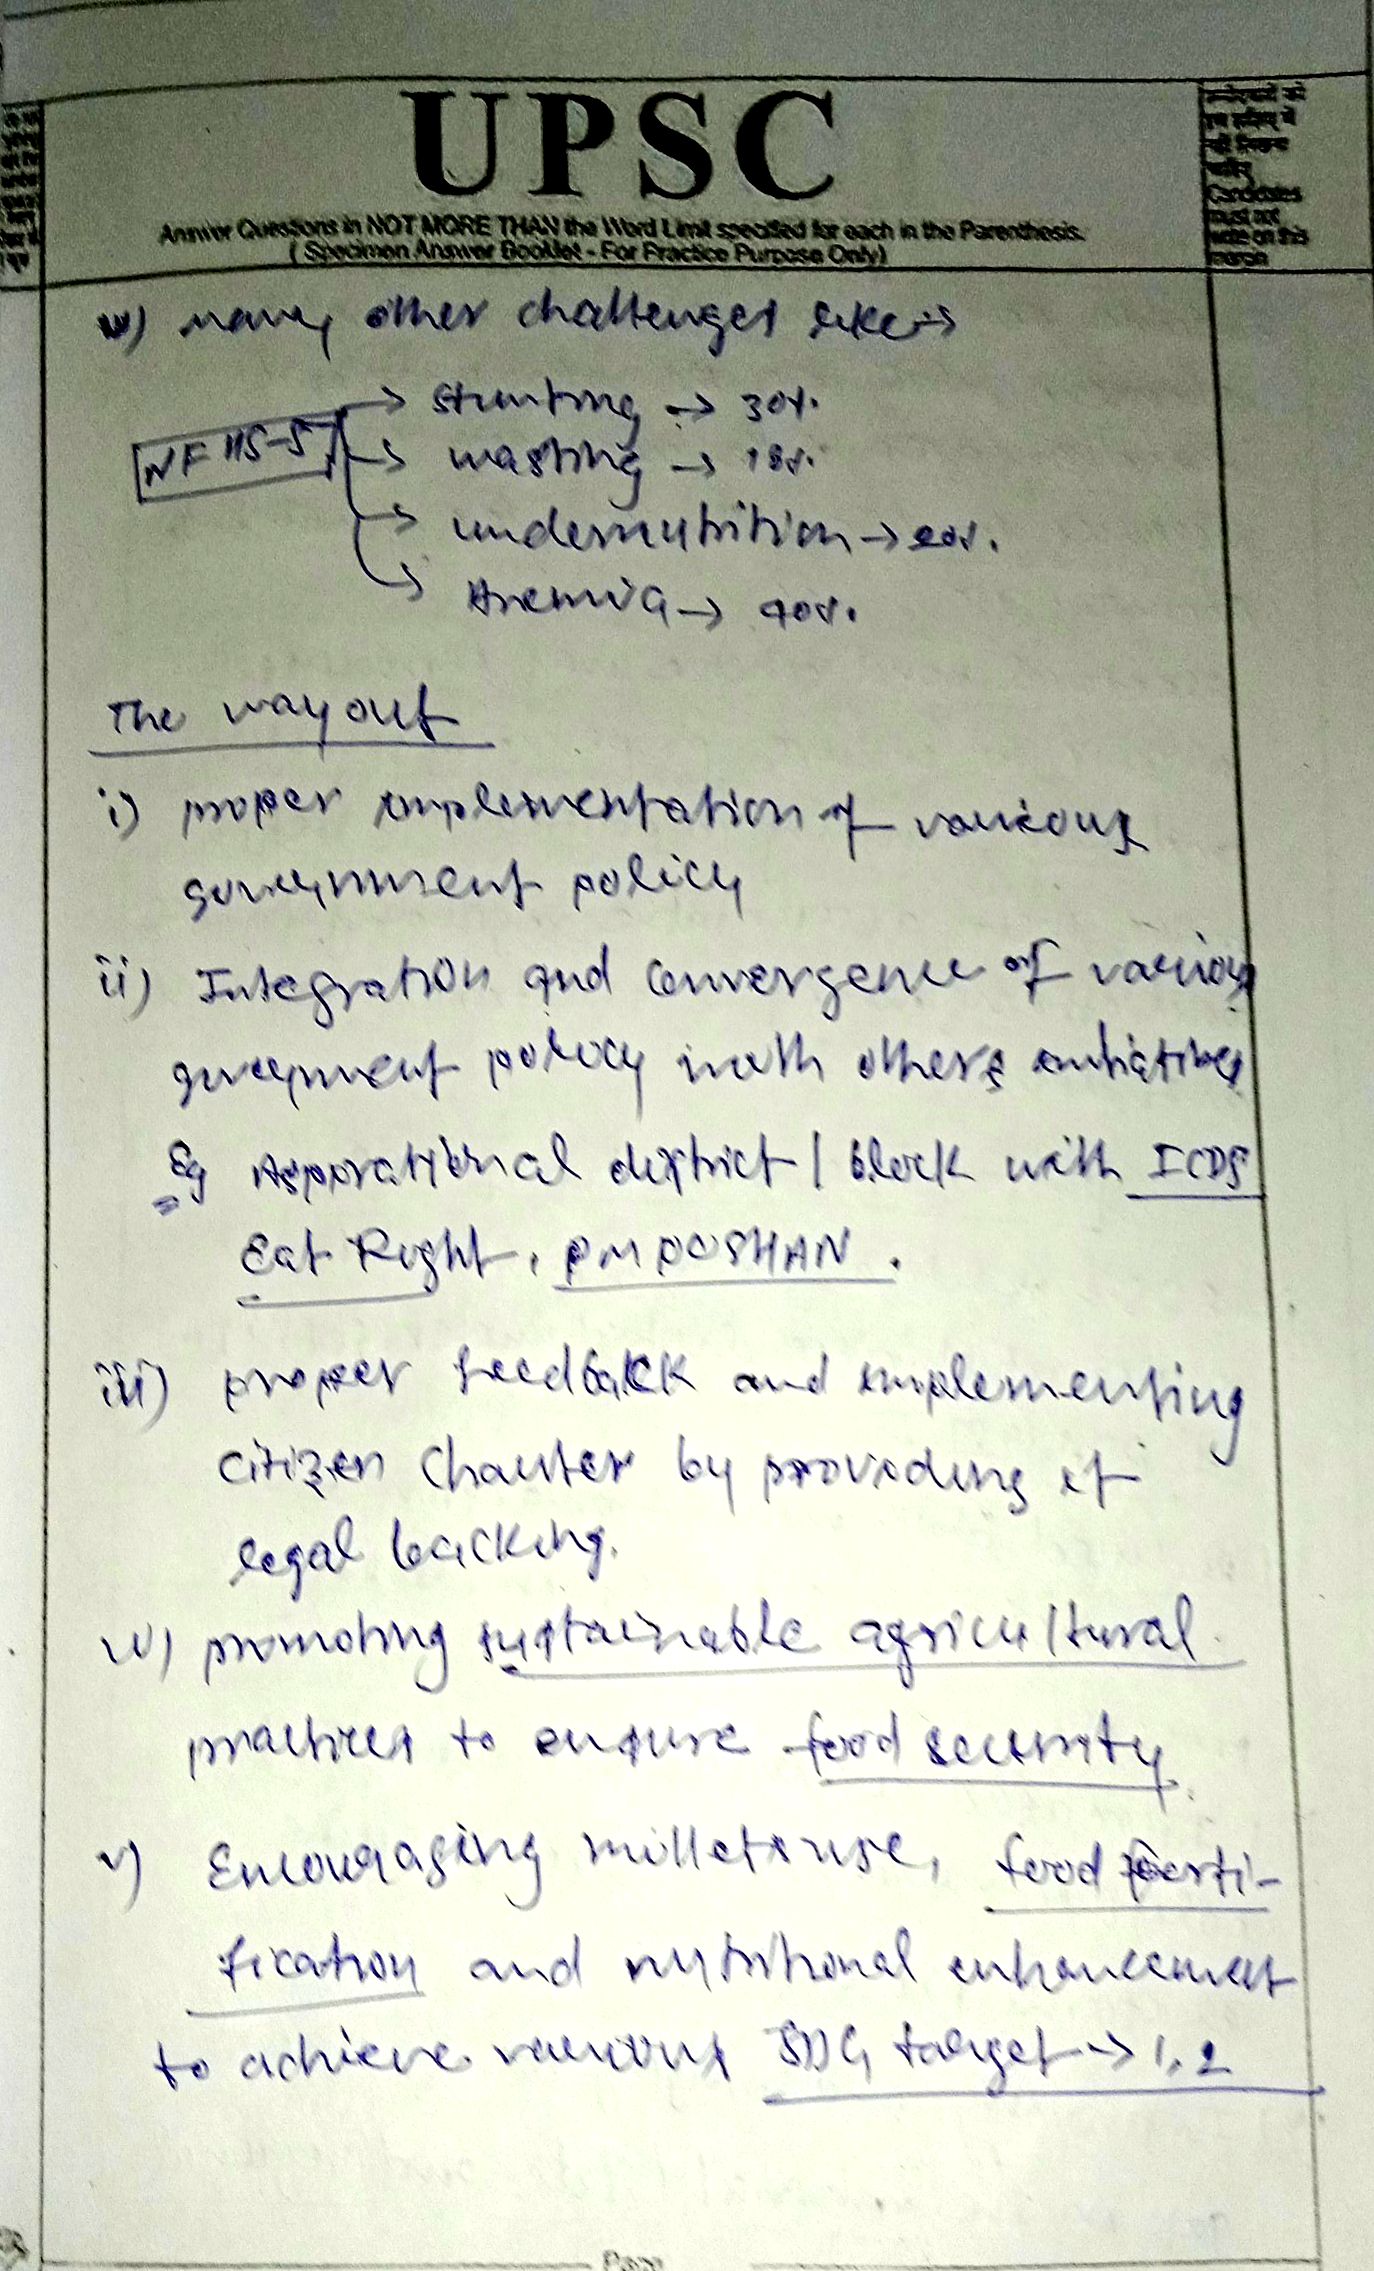 UPSC
Answer Questions in NOT MORE THAN the Word Limit specified for each in the Parenthesis.
( Specimen Answer Booklet - For Practice Purpose Only)
उम्मीदवारों को
इस हाशिए में
नहीं लिखना
चाहिए
Candidates
must not
write on this
margin
many other challenges like→
NFHS-5
→ Stunting → 30%.
→ wasting → 18%.
→ undernutrition →
→ Anemia →
The way out
i) proper implementation of various
government policy
ii) Integration and convergence of various
government policy with others initiatives
Eg Asporational district / block with ICDS
Eat Right, PM POSHAN.
iii) proper feedback and implementing
citizen Charter by providing it
legal backing.
iv) promoting sustainable agricultural
practices to ensure food security.
v) Encouraging millets use, food forti-
fication and nutritional enhancement
to achieve various SDG target → 1, 2
Page